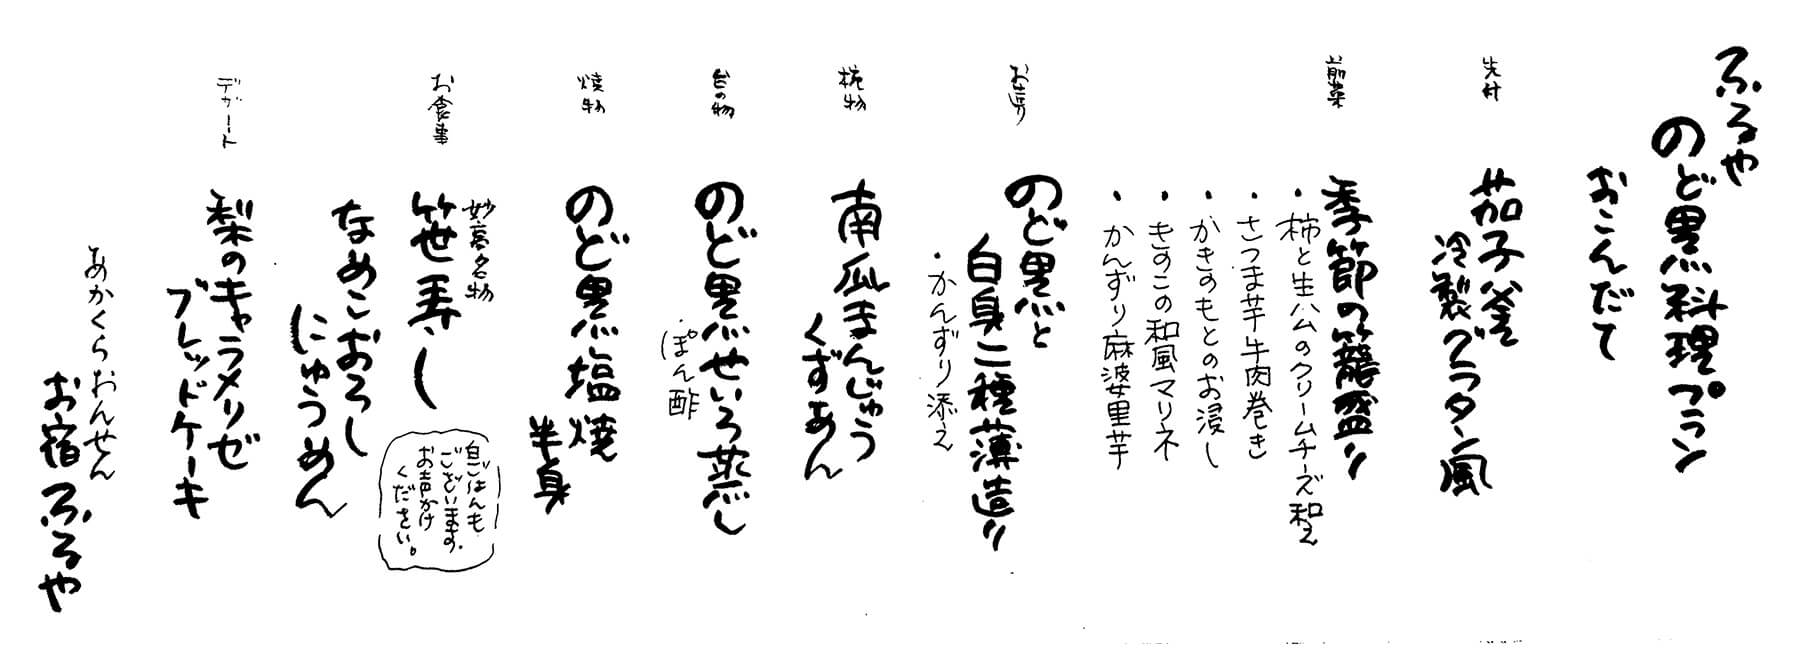 ふるや
のど黒料理プラン
おこんだて
先付
茄子釜
冷製グラタン風
前菜
季節の籠盛り
・柿と生ハムのクリームチーズ和え
・さつま芋牛肉巻き
・かきのもとのお浸し
・きのこの和風マリネ
・かんずり麻婆里芋
お造り
のど黒と
白身二種薄造り
・かんずり添え
椀物
南瓜まんじゅう
くずあん
台の物
のど黒せいろ蒸し
・ぽん酢
焼物
のど黒塩焼
半身
お食事
妙高名物
笹寿し
白ごはんも
ございます。
お声かけ
ください。
なめこおろし
にゅうめん
デザート
梨のキャラメリゼ
ブレッドケーキ
あかくらおんせん
お宿ふるや